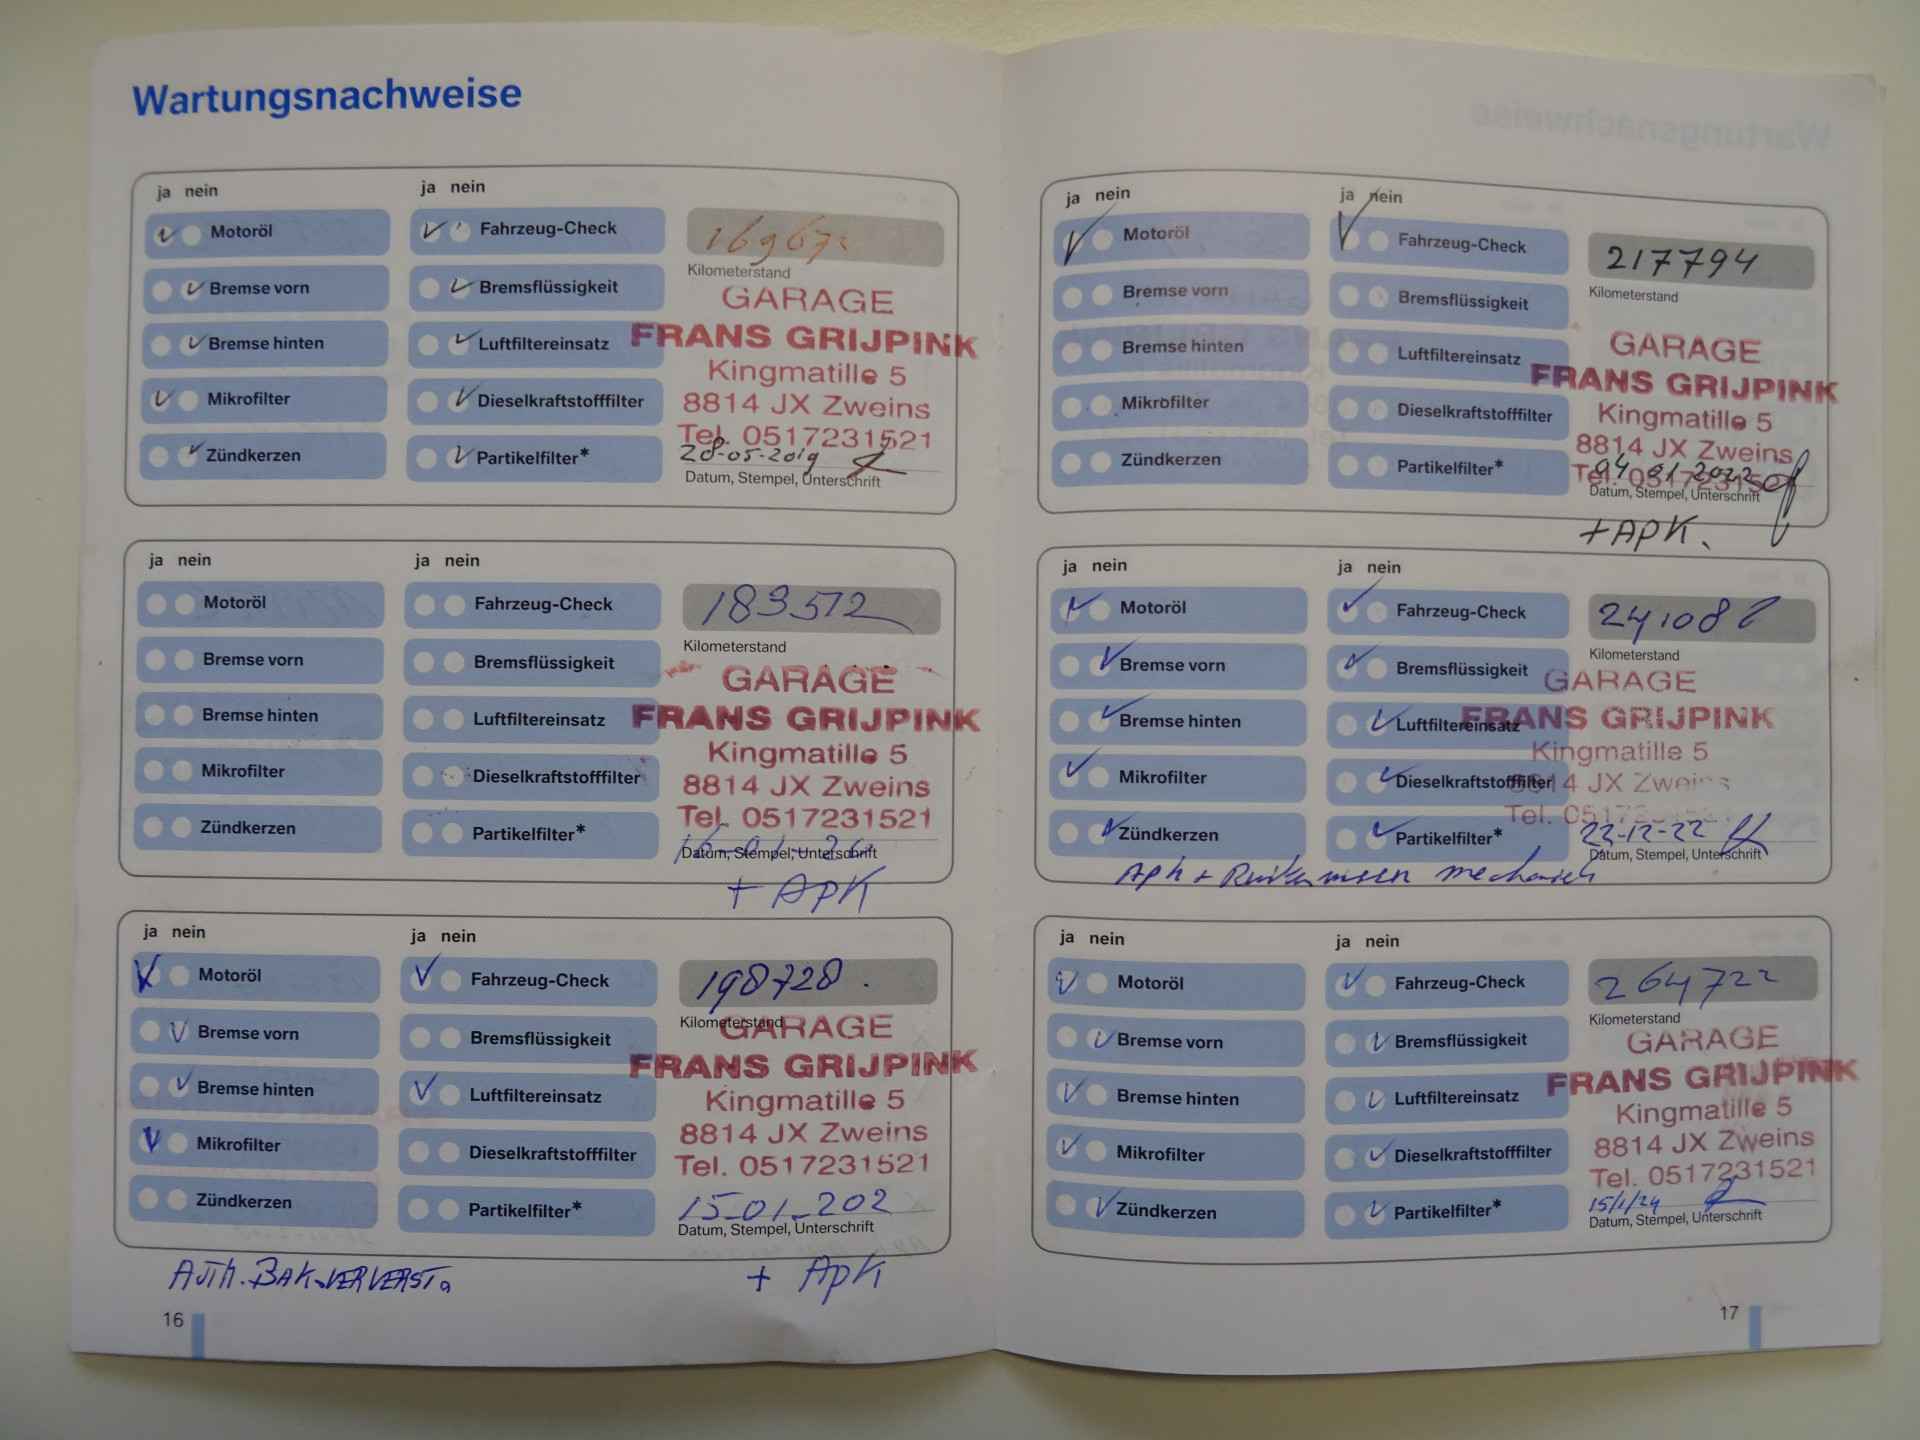 Wartungsnachweise
ja nein
ja nein
Motoröl
Fahrzeug-Check
Bremse vorn
Bremsflüssigkeit
Kilometerstand
Bremse hinten
Luftfiltereinsatz
Mikrofilter
Dieselkraftstofffilter
Zündkerzen
Partikelfilter*
GARAGE
FRANS GRIJPINK
Kingmatille 5
8814 JX Zweins
Tel. 0517231521
28-05-2019
Datum, Stempel, Unterschrift
ja nein
ja nein
Motoröl
Fahrzeug-Check
183572
Bremse vorn
Bremsflüssigkeit
Kilometerstand
Bremse hinten
Luftfiltereinsatz
Mikrofilter
Dieselkraftstofffilter
Zündkerzen
Partikelfilter*
GARAGE
FRANS GRIJPINK
Kingmatille 5
8814 JX Zweins
Tel. 0517231521
Datum, Stempel, Unterschrift
+ APK
ja nein
ja nein
Motoröl
Fahrzeug-Check
198728
Bremse vorn
Bremsflüssigkeit
Kilometerstand
Bremse hinten
Luftfiltereinsatz
Mikrofilter
Dieselkraftstofffilter
Zündkerzen
Partikelfilter*
GARAGE
FRANS GRIJPINK
Kingmatille 5
8814 JX Zweins
Tel. 0517231521
15-01-202
Datum, Stempel, Unterschrift
+ APK
16
ja nein
ja nein
Motoröl
Fahrzeug-Check
217794
Bremse vorn
Bremsflüssigkeit
Kilometerstand
Bremse hinten
Luftfiltereinsatz
Mikrofilter
Dieselkraftstofffilter
Zündkerzen
Partikelfilter*
GARAGE
FRANS GRIJPINK
Kingmatille 5
8814 JX Zweins
Tel. 0517231521
04 01 2022
Datum, Stempel, Unterschrift
+ APK.
ja nein
ja nein
Motoröl
Fahrzeug-Check
Bremse vorn
Bremsflüssigkeit
Kilometerstand
Bremse hinten
Luftfiltereinsatz
Mikrofilter
Dieselkraftstofffilter
Zündkerzen
Partikelfilter*
GARAGE
FRANS GRIJPINK
Kingmatille 5
8814 JX Zweins
Tel. 0517231521
22-12-22
Datum, Stempel, Unterschrift
Apk +
ja nein
ja nein
Motoröl
Fahrzeug-Check
264722
Bremse vorn
Bremsflüssigkeit
Kilometerstand
Bremse hinten
Luftfiltereinsatz
Mikrofilter
Dieselkraftstofffilter
Zündkerzen
Partikelfilter*
GARAGE
FRANS GRIJPINK
Kingmatille 5
8814 JX Zweins
Tel. 0517231521
15/1/24
Datum, Stempel, Unterschrift
17